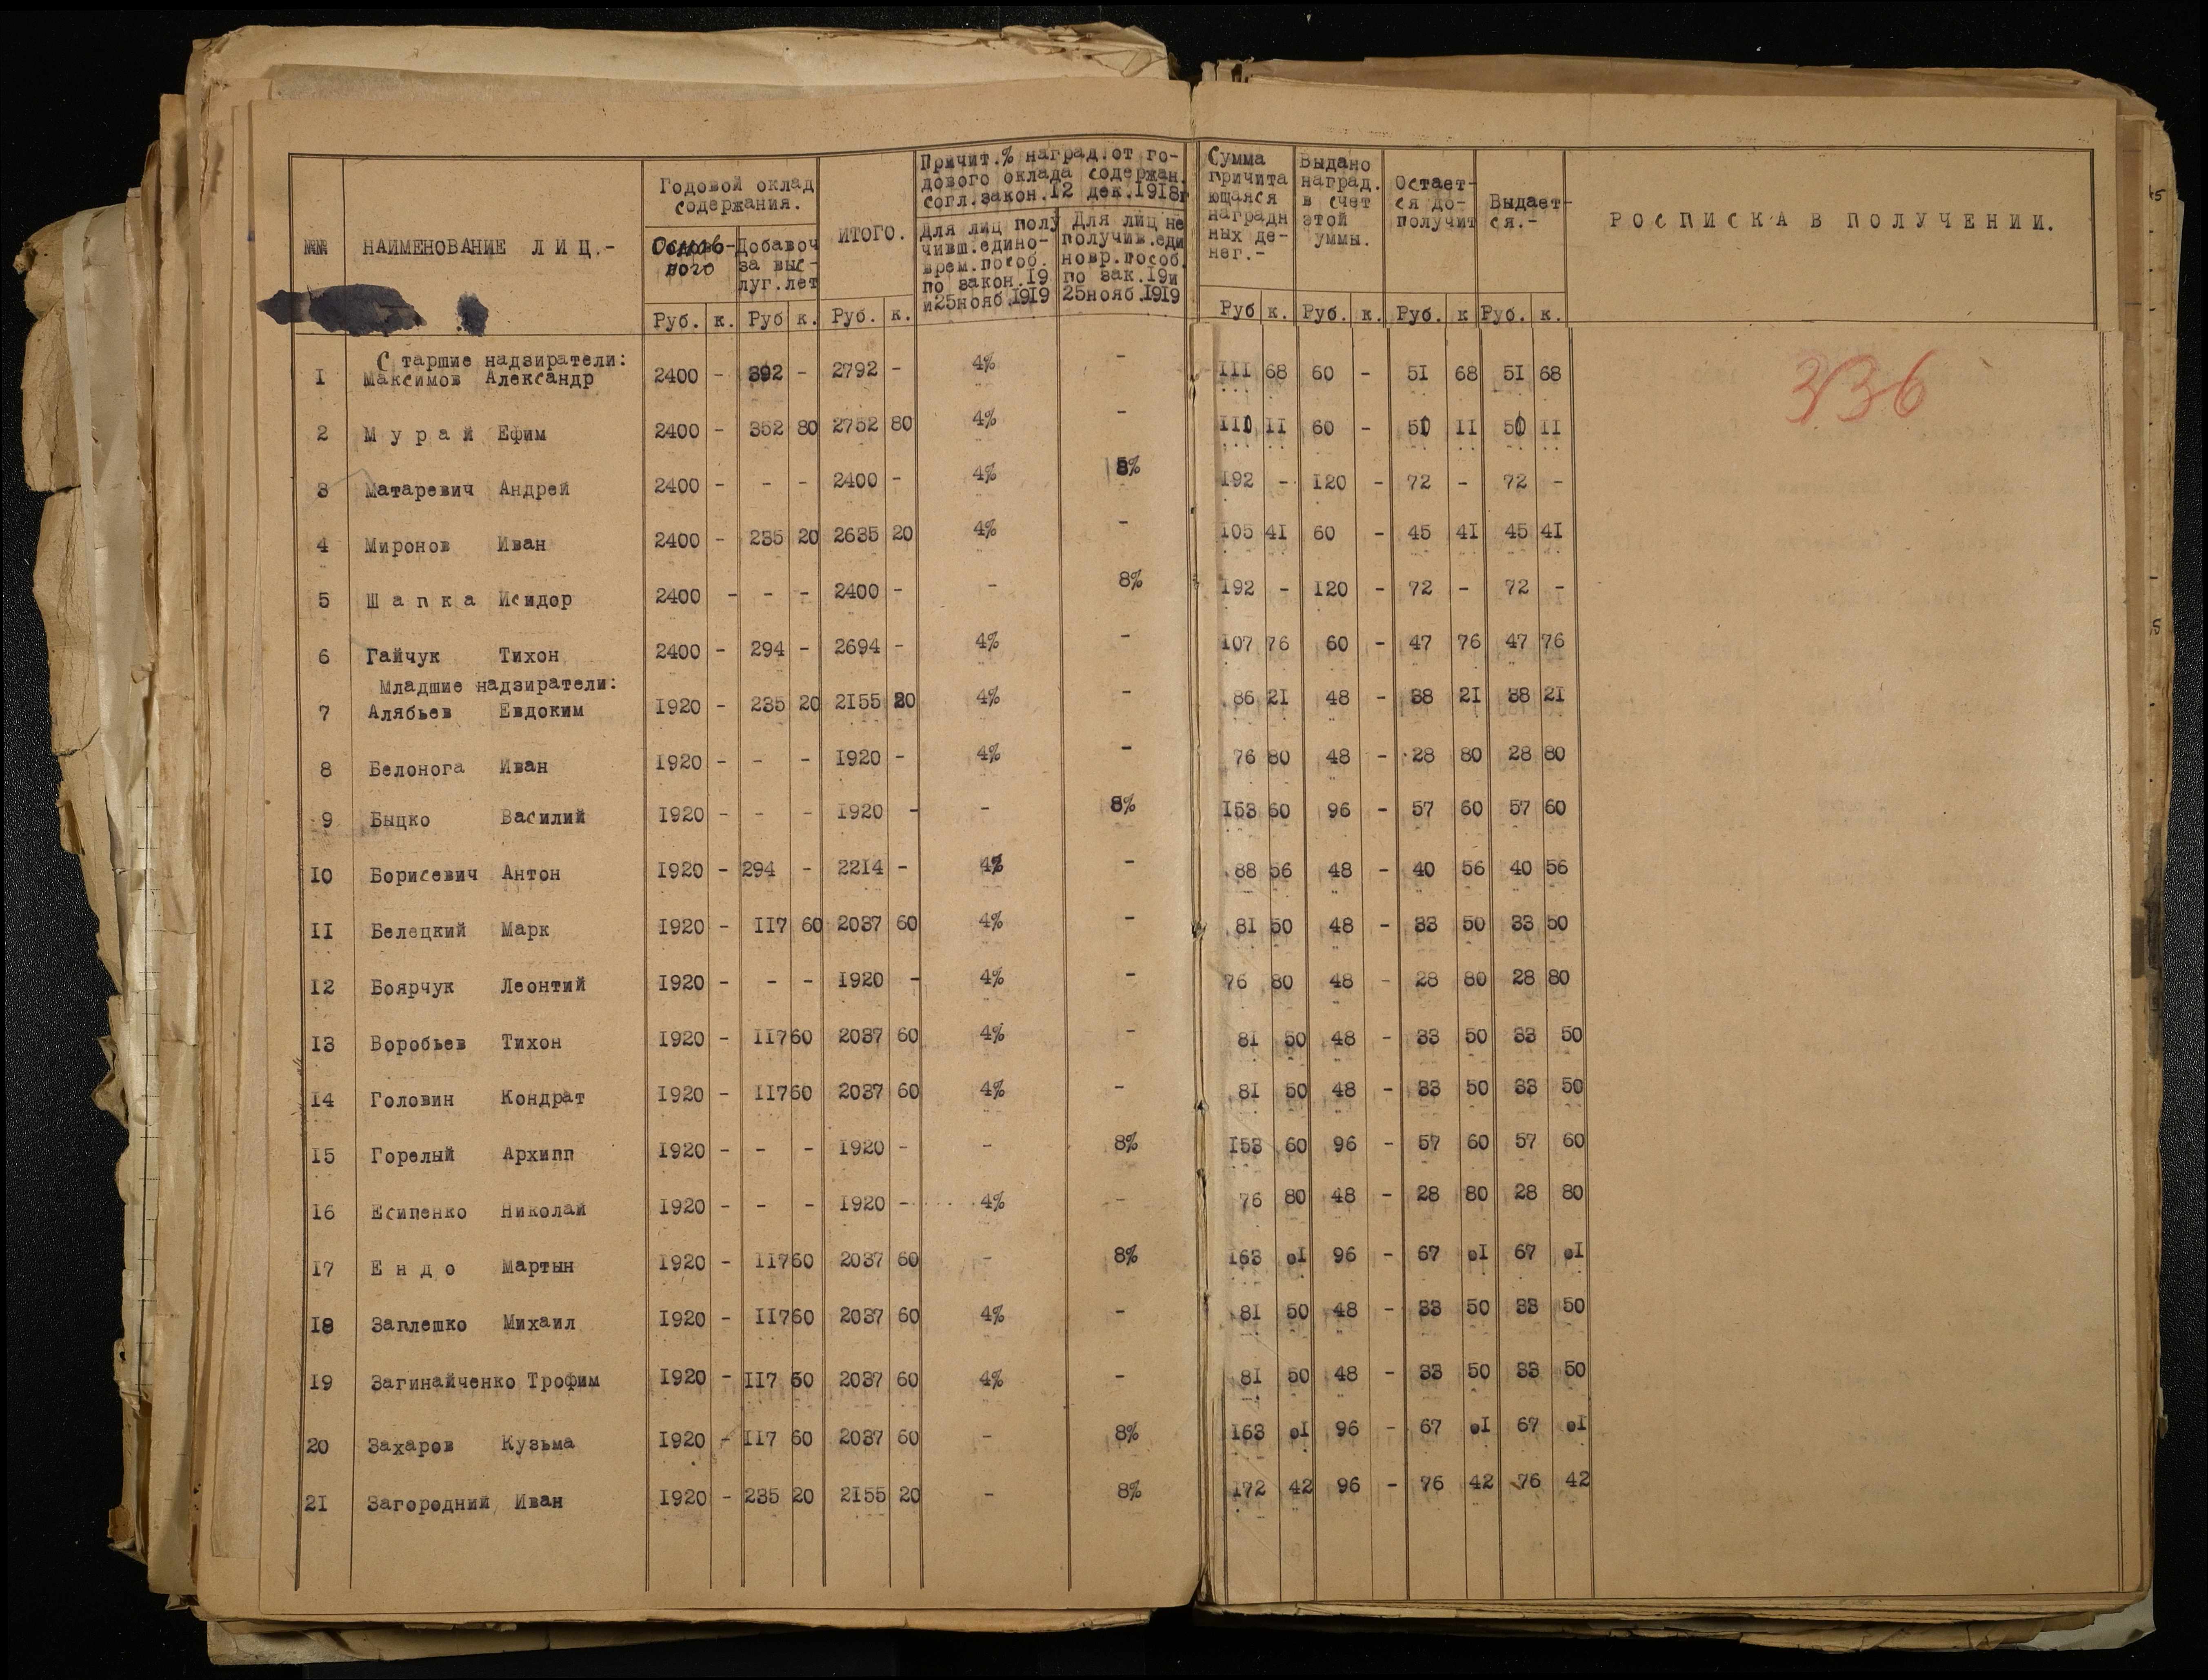 №№ НАИМЕНОВАНИЕ ЛИЦ.- Годовой оклад содержания. Основного Добавоч за выс-луг.лет ИТОГО. Причит.% наград.от го-дового оклада содержан. согл.закон.12 дек.1918г Для лиц полу чивш.едино-врем.пособ. по закон.19 и25нояб.1919 Для лиц не получив.еди новр.пособ. по зак.19и 25нояб.1919 Сумма причита ющаяся наградн ных де-нег.- Выдано наград. в счет этой уммы. Остает-ся до-получит Выдает-ся.- РОСПИСКА В ПОЛУЧЕНИИ.
Руб. к. Руб к. Руб. к. Руб к. Руб. к. Руб. к Руб. к.
336
Старшие надзиратели:
I Максимов Александр 2400 - 392 - 2792 - 4% - III 68 60 - 5I 68 5I 68
2 Мурай Ефим 2400 - 352 80 2752 80 4% - 110 II 60 - 50 II 50 II
3 Матаревич Андрей 2400 - - - 2400 - 4% 8% 192 - I20 - 72 - 72 -
4 Миронов Иван 2400 - 235 20 2635 20 4% - I05 4I 60 - 45 4I 45 4I
5 Шапка Исидор 2400 - - - 2400 - - 8% I92 - I20 - 72 - 72 -
6 Гайчук Тихон 2400 - 294 - 2694 - 4% - I07 76 60 - 47 76 47 76
Младшие надзиратели:
7 Алябьев Евдоким I920 - 235 20 2I55 20 4% - 86 2I 48 - 38 2I 38 2I
8 Белонога Иван I920 - - - I920 - 4% - 76 80 48 - 28 80 28 80
9 Быцко Василий I920 - - - I920 - - 8% I53 60 96 - 57 60 57 60
I0 Борисевич Антон I920 - 294 - 22I4 - 4% - 88 56 48 - 40 56 40 56
II Белецкий Марк I920 - II7 60 2037 60 4% - 8I 50 48 - 33 50 33 50
I2 Боярчук Леонтий I920 - - - I920 - 4% - 76 80 48 - 28 80 28 80
I3 Воробьев Тихон I920 - II7 60 2037 60 4% - 8I 50 48 - 33 50 33 50
I4 Головин Кондрат I920 - II7 60 2037 60 4% - 8I 50 48 - 33 50 33 50
I5 Горелый Архипп I920 - - - I920 - - 8% I53 60 96 - 57 60 57 60
I6 Есипенко Николай I920 - - - I920 - 4% - 76 80 48 - 28 80 28 80
I7 Ендо Мартын I920 - II7 60 2037 60 - 8% I63 0I 96 - 67 0I 67 0I
I8 Заплешко Михаил I920 - II7 60 2037 60 4% - 8I 50 48 - 33 50 33 50
I9 Загинайченко Трофим I920 - II7 60 2037 60 4% - 8I 50 48 - 33 50 33 50
20 Захаров Кузьма I920 - II7 60 2037 60 - 8% I63 0I 96 - 67 0I 67 0I
2I Загородний Иван I920 - 235 20 2I55 20 - 8% I72 42 96 - 76 42 76 42